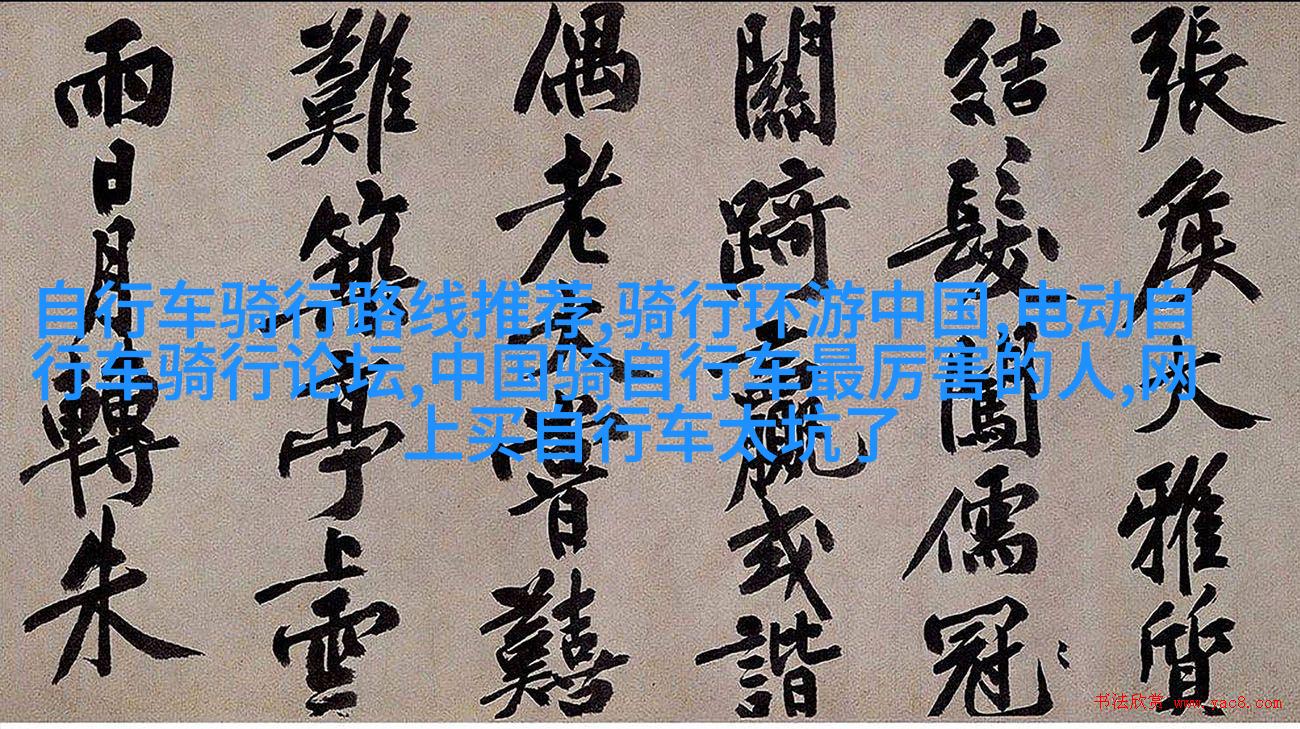 自行车骑行路线推荐,骑行环游中国,电动自
行车骑行论坛,中国骑自行车最厉害的人,网
上买自行车太坑了
張矦大雅質
結髮闖儒冠
關踦一贏或諧
偶老大嘗囏
難築亭上雲
雨日月轉朱
书法欣赏 www.yac8.com